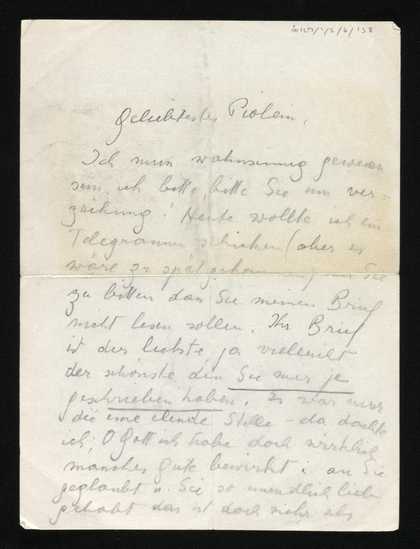 Geliebtestes Piolein,
Ich muss wahnsinnig gewesen
sein, ich bitte bitte Sie um ver-
zeihung! Heute wollte ich ein
Telegramm schicken (aber es
wäre zu spät gekommen) um Sie
zu bitten dass Sie meinen Brief
nicht lesen sollen. Ihr Brief
ist der liebste, ja vielleicht
der schönste den Sie mir je
geschrieben haben. Es war nur
die eine Stelle - da dachte
ich, O Gott ich habe doch wirklich
manches gute bewirkt: an Sie
geglaubt u. Sie so unendlich lieb
gehabt das ist doch mehr als